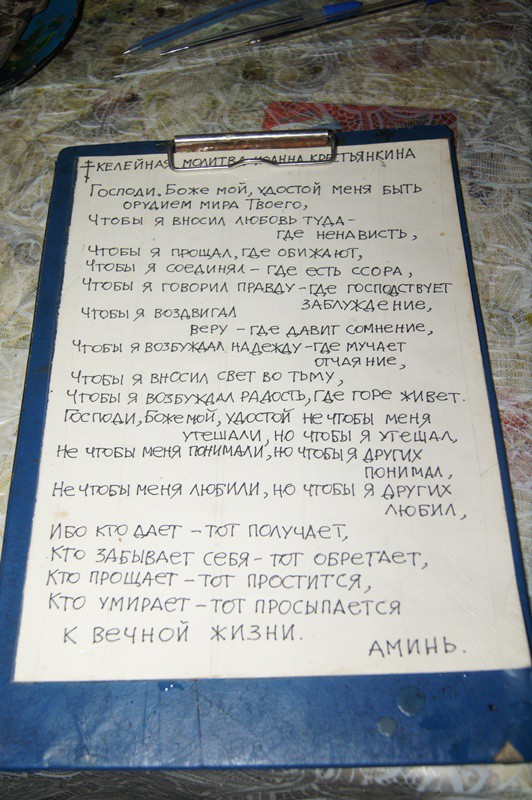 КЕЛЕЙНАЯ МОЛИТВА ИОАННА КРЕСТЬЯНКИНА
Господи, Боже мой, удостой меня быть
орудием мира Твоего,
Чтобы я вносил любовь туда –
где ненависть,
Чтобы я прощал, где обижают,
Чтобы я соединял – где есть ссора,
Чтобы я говорил правду – где господствует
заблуждение,
Чтобы я воздвигал
веру – где давит сомнение,
Чтобы я возбуждал надежду – где мучает
отчаяние,
Чтобы я вносил свет во тьму,
Чтобы я возбуждал радость, где горе живет.
Господи, Боже мой, удостой не чтобы меня
утешали, но чтобы я утешал,
Не чтобы меня понимали, но чтобы я других
понимал,
Не чтобы меня любили, но чтобы я других
любил,
Ибо кто дает – тот получает,
Кто забывает себя – тот обретает,
Кто прощает – тот простится,
Кто умирает – тот просыпается
к вечной жизни.
Аминь.